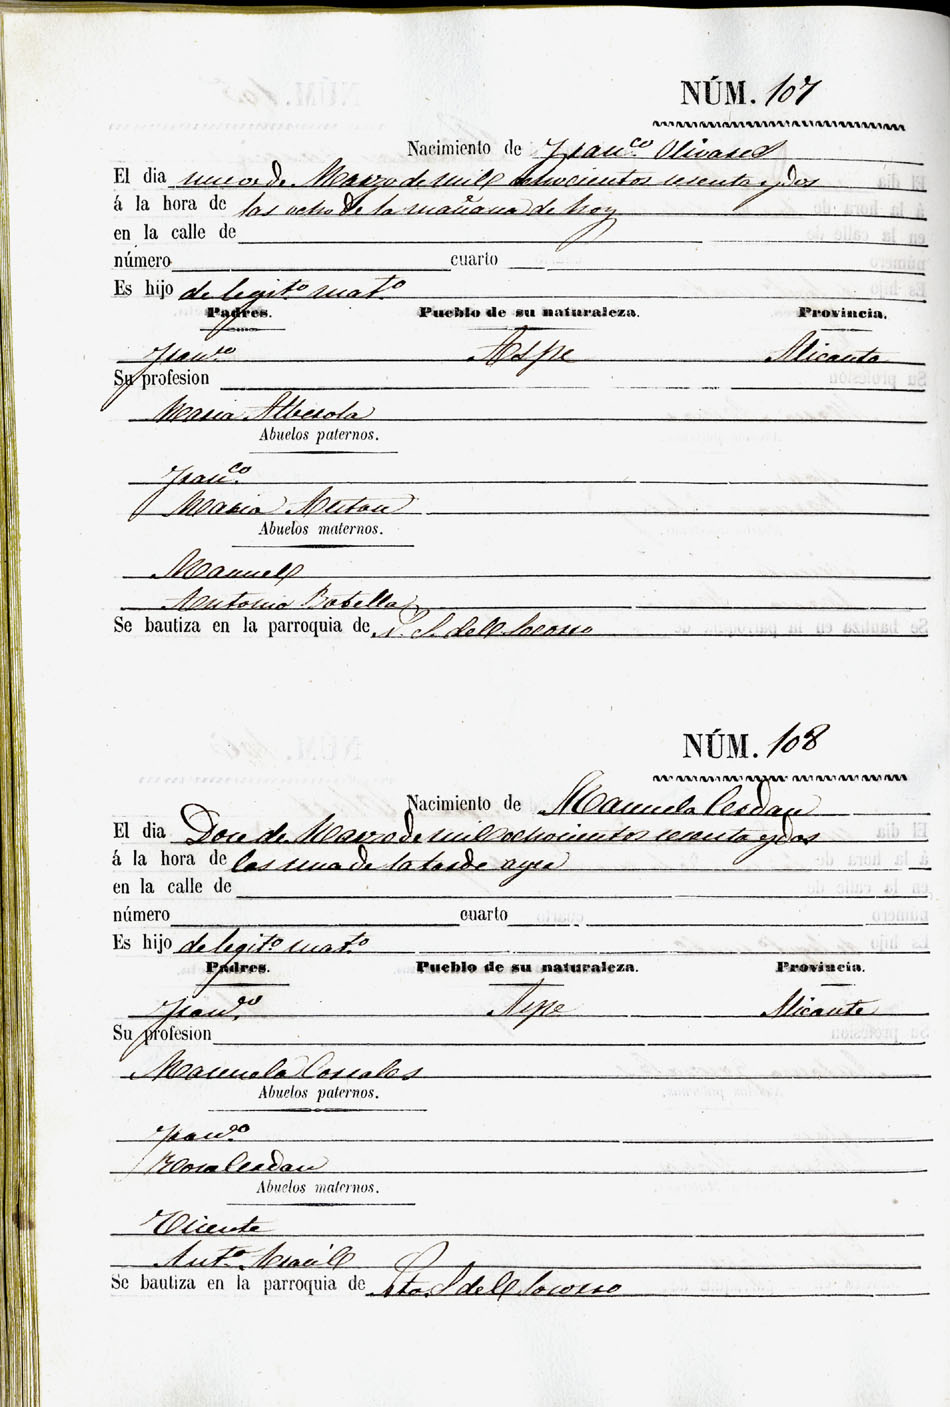 NÚM. 107
Nacimiento de Franco. Olivares
El dia nueve de Marzo de mil ochocientos sesenta y dos
á la hora de las ocho de la mañana de hoy
en la calle de
número cuarto
Es hijo de legito. mato.
Padres. Pueblo de su naturaleza. Provincia.
Franco. Aspe Alicante
Su profesion
Maria Alberola
Abuelos paternos.
Franco.
Maria
Abuelos maternos.
Manuel
Antonia Botella
Se bautiza en la parroquia de N. S. del Socorro
NÚM. 108
Nacimiento de Manuela Cerdan
El dia Doce de Marzo de mil ochocientos sesenta y dos
á la hora de las una de la tarde ayer
en la calle de
número cuarto
Es hijo de legito. mato.
Padres. Pueblo de su naturaleza. Provincia.
Franco. Aspe Alicante
Su profesion
Manuela Corrales
Abuelos paternos.
Franco.
Rosa Cerdan
Abuelos maternos.
Vicente
Anta.
Se bautiza en la parroquia de Ntra. S. del Socorro